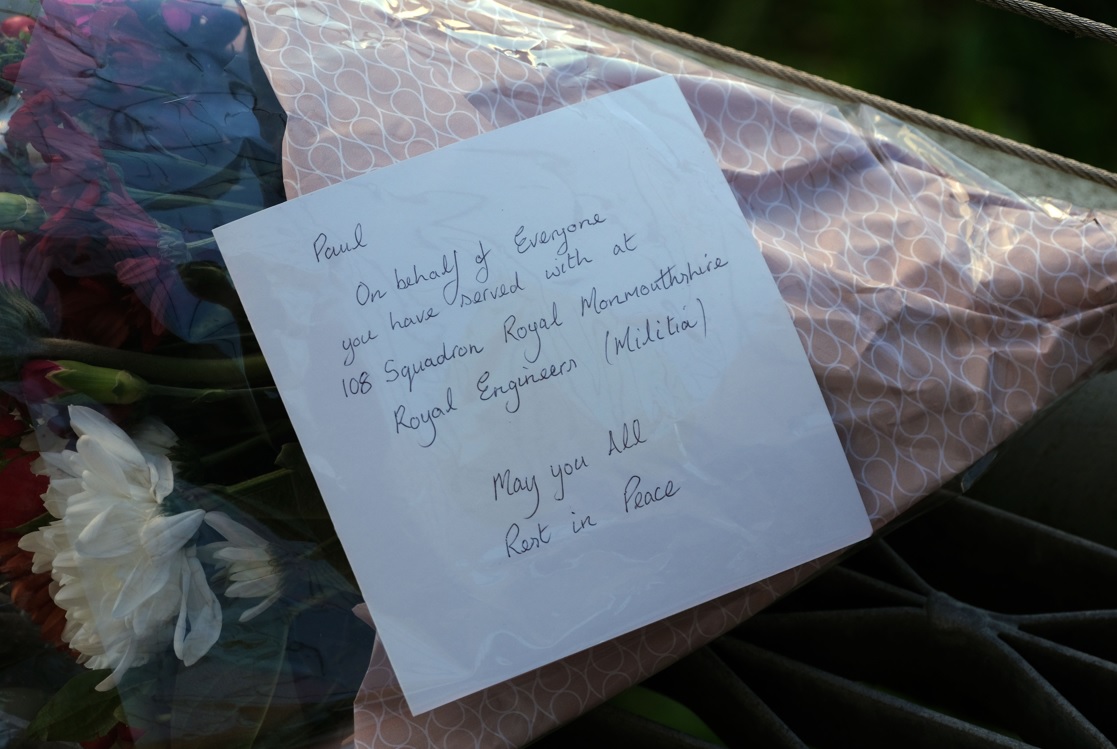 Paul
On behalf of Everyone
you have served with at
108 Squadron Royal Monmouthshire
Royal Engineers (Militia)
May you All
Rest in Peace